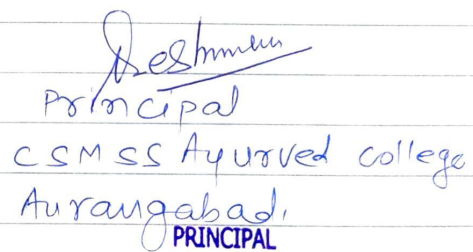 Principal
CSMSS Ayurved college
Aurangabad.
PRINCIPAL